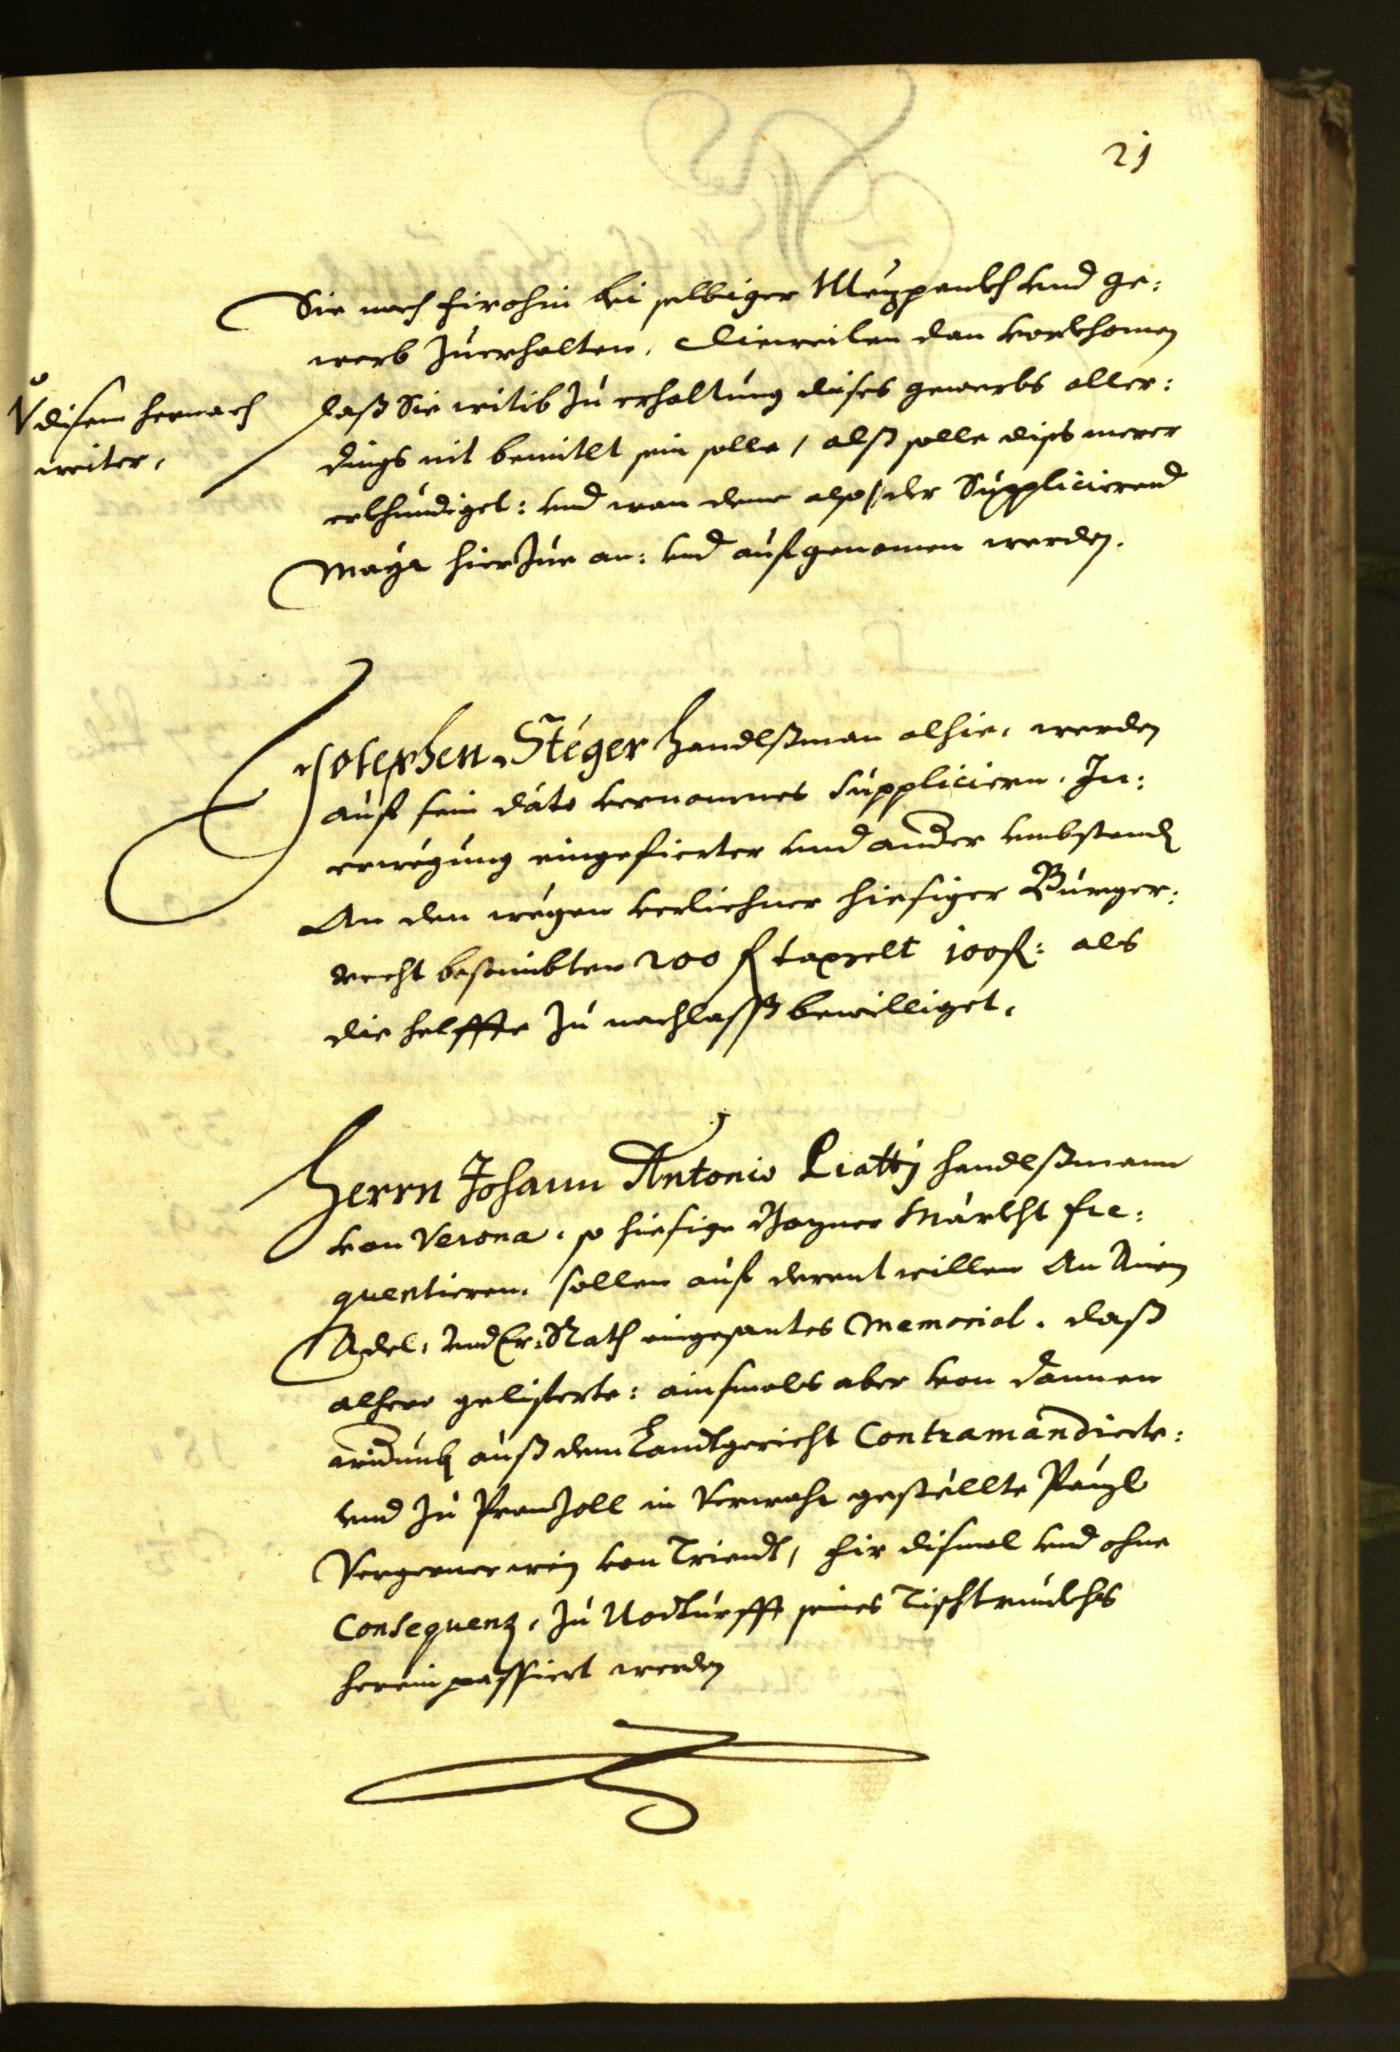 21
Sie noch firohin bei selbiger Mezpankh und ge:
werb zuerhalten, dieweilen dan vorkhomen
V disem hernach
weiter,
daß Sie witib zu erhaltung dises gewerbs aller:
dings nit bemitlt sein solle, alß solle diss merer
erkhundiget: und wan deme also, der Supplicierend
Mayr hierzue an: und aufgenomen werden.
Josephen Steger handlßman alhie, werden
auf sein dato vernomnes suppliciern, In:
erwegung eingefierter und ander umbstendt
An den wegen verlichner hiesiger Burger:
recht bestimbten 200 fl taxgelt 100 fl: als
die helffte zu nachlasß bewilliget.
Herrn Johann Antonio Liatti handlßmann
von Verona, so hiesige Bozner Märkht fre:
quentieren, sollen auf derent willen An Ainen
Adel: und Er: Rath eingesantes Memorial, daß
alhero gelifferte: ainsmals aber von dannen
widumb auß dem Landtgericht Contramandierte:
und zu Pranzoll in Verwahr gestellte Pänzl
Vergerner wein von Triendt, fir dismal und ohne
Consequenz, zu Nodturfft seines Tischtrunkhs
herein passiert werden